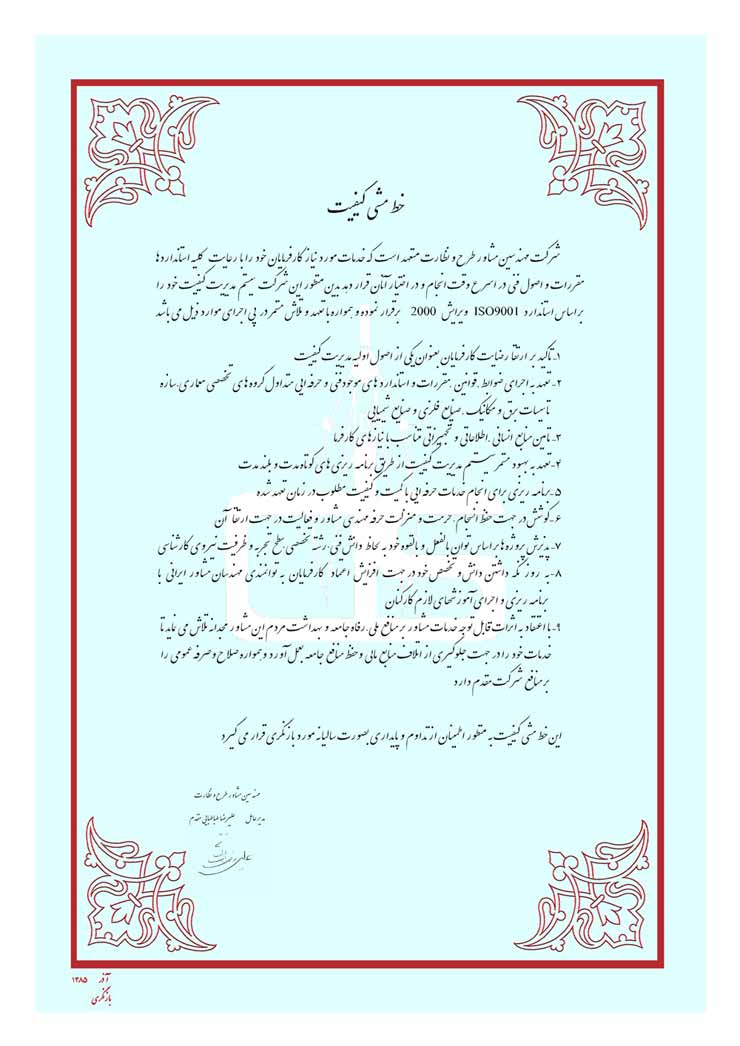 خط مشی کیفیت
شرکت مهندسین مشاور طرح و نظارت متعهد است که خدمات مورد نیاز کارفرمایان خود را با رعایت کلیه استانداردها
مقررات و اصول فنی در اسرع وقت انجام و در اختیار آنان قرار دهد بدین منظور این شرکت سیستم مدیریت کیفیت خود را
بر اساس استاندارد ISO9001 ویرایش 2000 برقرار نموده و همواره با تعهد و تلاش مستمر در پی اجرای موارد ذیل می باشد
۱-تاکید بر ارتقا رضایت کارفرمایان بعنوان یکی از اصول اولیه مدیریت کیفیت
۲-تعهد به اجرای ضوابط ,قوانین ,مقررات و استانداردهای موجود فنی و حرفه ایی متداول گروه های تخصصی معماری,سازه
تاسیسات برق و مکانیک ,صنایع فلزی و صنایع شیمیایی
۳-تامین منابع انسانی ,اطلاعاتی و تجهیزاتی متناسب با نیازهای کارفرما
۴-تعهد به بهبود مستمر سیستم مدیریت کیفیت از طریق برنامه ریزی های کوتاه مدت و بلند مدت
۵-برنامه ریزی برای انجام خدمات حرفه ایی با کمیت و کیفیت مطلوب در زمان تعهد شده
۶-کوشش در جهت حفظ انسجام,حرمت و منزلت حرفه مهندسی مشاور و فعالیت در جهت ارتقا آن
۷-پذیرش پروژه ها بر اساس توان بالفعل و بالقوه خود به لحاظ دانش فنی,رشته تخصصی,سطح تجربه و ظرفیت نیروی کارشناسی
۸-به روز نگه داشتن دانش و تخصص خود در جهت افزایش اعتماد کارفرمایان به توانمندی مهندسان مشاور ایرانی با
برنامه ریزی و اجرای آموزشهای لازم کارکنان
۹-با اعتقاد به اثرات قابل توجه خدمات مشاور بر منافع ملی,رفاه جامعه و بهداشت مردم این مشاور مجدانه تلاش می نماید تا
خدمات خود را در جهت جلوگیری از اتلاف منابع مالی و حفظ منافع جامعه بعمل آورد و همواره صلاح و صرفه عمومی را
بر منافع شرکت مقدم دارد
این خط مشی کیفیت به منظور اطمینان از تداوم و پایداری بصورت سالیانه مورد بازنگری قرار می گیرد
مهندسین مشاور طرح و نظارت
مدیر عامل علیرضا طباطبایی مقدم
آذر ۱۳۸۵
بازنگری